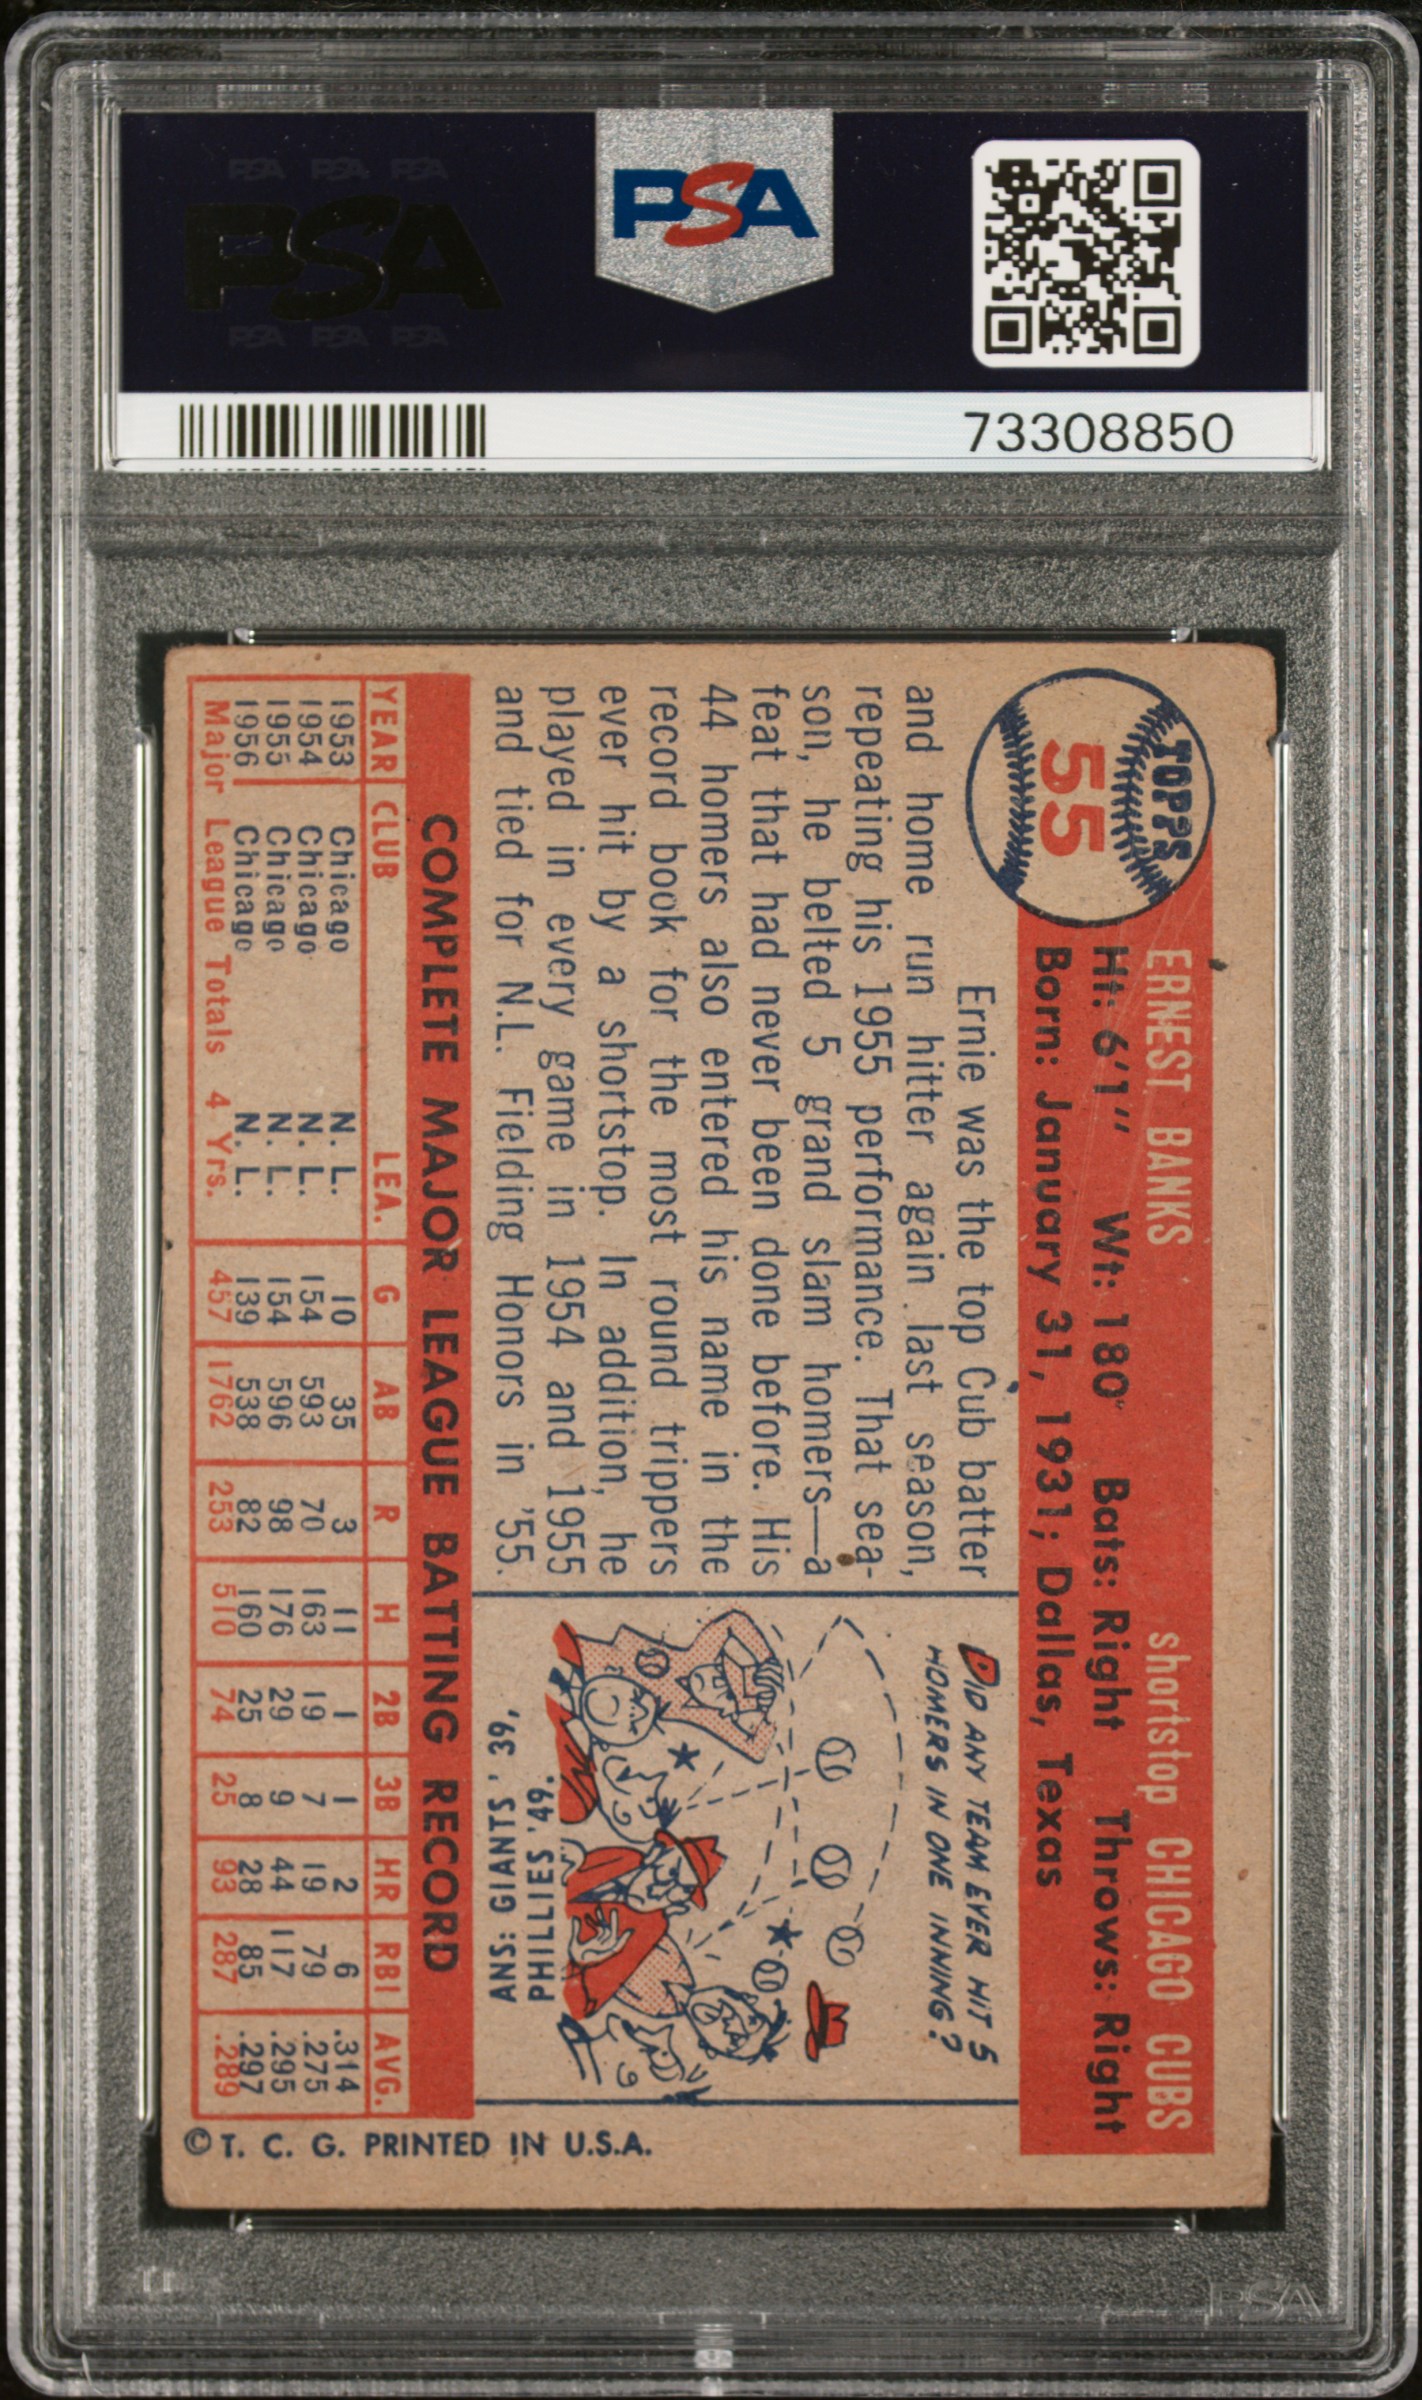 PSA PSA PSA
PSA
PSA PSA PSA
PSA
73308850
TOPPS
55
ERNEST BANKS shortstop CHICAGO CUBS
Ht: 6'1" Wt: 180 Bats: Right Throws: Right
Born: January 31, 1931; Dallas, Texas
Ernie was the top Cub batter
and home run hitter again last season,
repeating his 1955 performance. That sea-
son, he belted 5 grand slam homers—a
feat that had never been done before. His
44 homers also entered his name in the
record book for the most round trippers
ever hit by a shortstop. In addition, he
played in every game in 1954 and 1955
and tied for N.L. Fielding Honors in '55.
DID ANY TEAM EVER HIT 5
HOMERS IN ONE INNING?
ANS: GIANTS '39,
PHILLIES '49.
COMPLETE MAJOR LEAGUE BATTING RECORD
YEAR CLUB LEA. G AB R H 2B 3B HR RBI AVG.
1953 Chicago N. L. 10 35 3 11 1 1 2 6 .314
1954 Chicago N. L. 154 593 70 163 19 7 19 79 .275
1955 Chicago N. L. 154 596 98 176 29 9 44 117 .295
1956 Chicago N. L. 139 538 82 160 25 8 28 85 .297
Major League Totals 4 Yrs. 457 1762 253 510 74 25 93 287 .289
© T. C. G. PRINTED IN U.S.A.
PSA